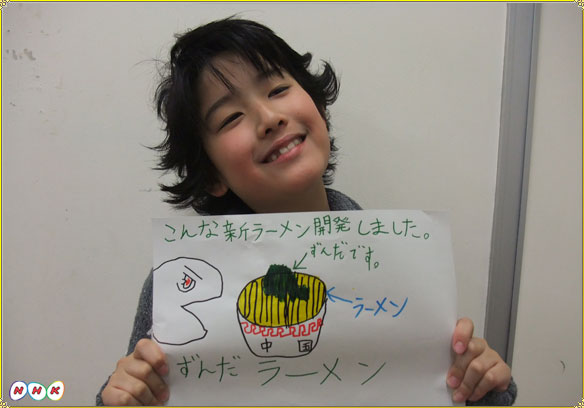 こんな新ラーメン開発しました。
ずんだです。
ラーメン
中国
ずんだ ラーメン
NHK